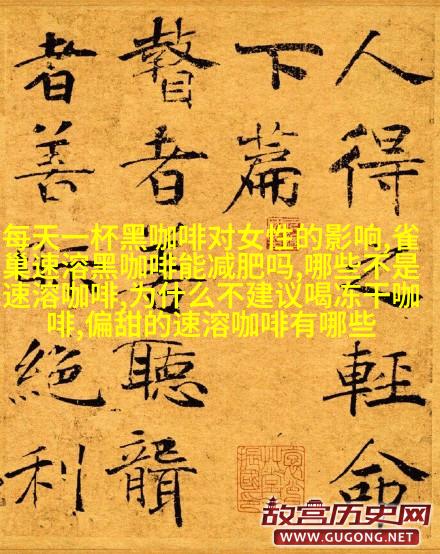 人得輕命
下篇
瞽者聽聾
者善絕利
每天一杯黑咖啡对女性的影响,雀
巢速溶黑咖啡能减肥吗,哪些不是
速溶咖啡,为什么不建议喝冻干咖
啡,偏甜的速溶咖啡有哪些
故宫历史网
WWW.GUGONG.NET